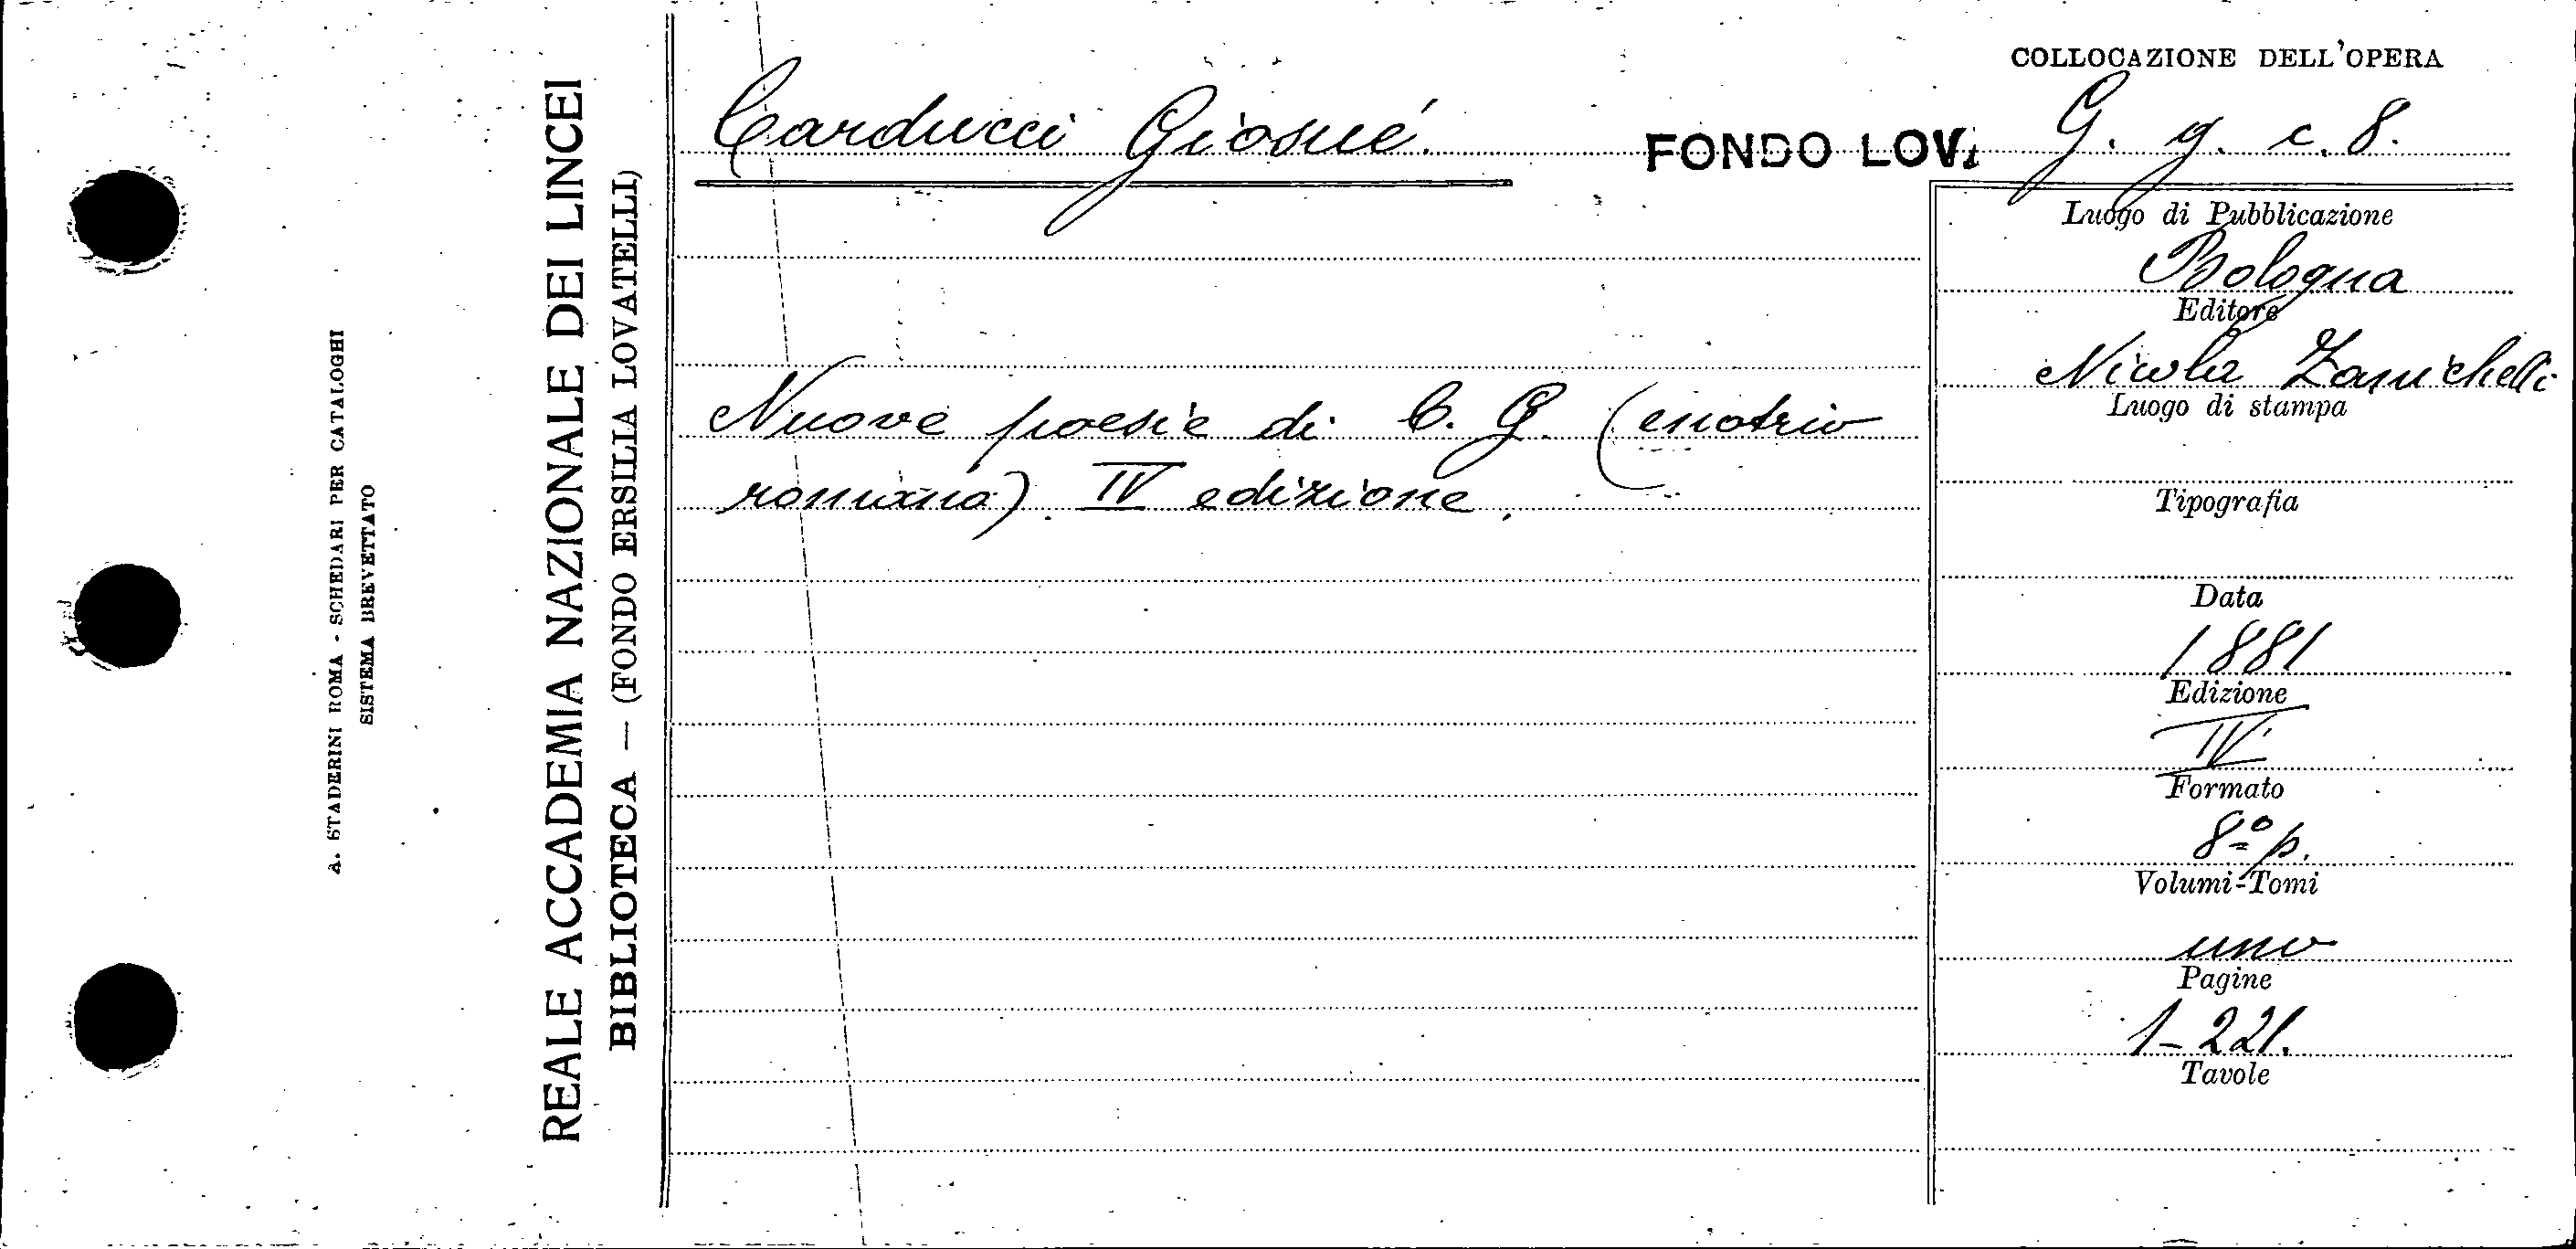 A. STADERINI ROMA - SCHEDARI PER CATALOGHI
SISTEMA BREVETTATO
REALE ACCADEMIA NAZIONALE DEI LINCEI
BIBLIOTECA — (FONDO ERSILIA LOVATELLI)
Carducci Giosué.
FONDO LOV.
Nuove poesie di C. G. (enotrio
romano). IV edizione.
COLLOCAZIONE DELL'OPERA
G. g. c. 8.
Luogo di Pubblicazione
Bologna
Editore
Nicola Zanichelli
Luogo di stampa
Tipografia
Data
1881
Edizione
IV
Formato
8º p.
Volumi-Tomi
uno
Pagine
1-221.
Tavole